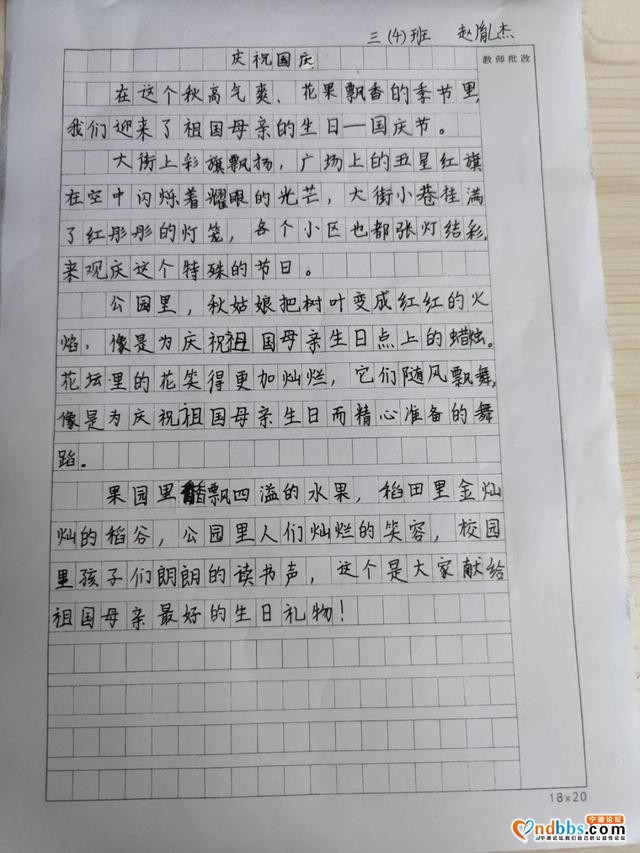 三(4)班 赵胤杰
庆祝国庆
教师批改
在这个秋高气爽、花果飘香的季节里,
我们迎来了祖国母亲的生日一国庆节。
大街上彩旗飘扬，广场上的五星红旗
在空中闪烁着耀眼的光芒，大街小巷挂满
了红彤彤的灯笼，各个小区也都张灯结彩,
来观庆这个特殊的节日。
公园里，秋姑娘把树叶变成红红的火
焰，像是为庆祝祖国母亲生日点上的蜡烛。
花坛里的花笑得更加灿烂，它们随风飘舞,
像是为庆祝祖国母亲生日而精心准备的舞
蹈。
果园里香飘四溢的水果，稻田里金灿
灿的稻谷，公园里人们灿烂的笑容，校园
里孩子们朗朗的读书声，这个是大家献给
祖国母亲最好的生日礼物！
18×20
宁德论坛
ndbbs.com
宁德论坛,我们自己的公益性论坛